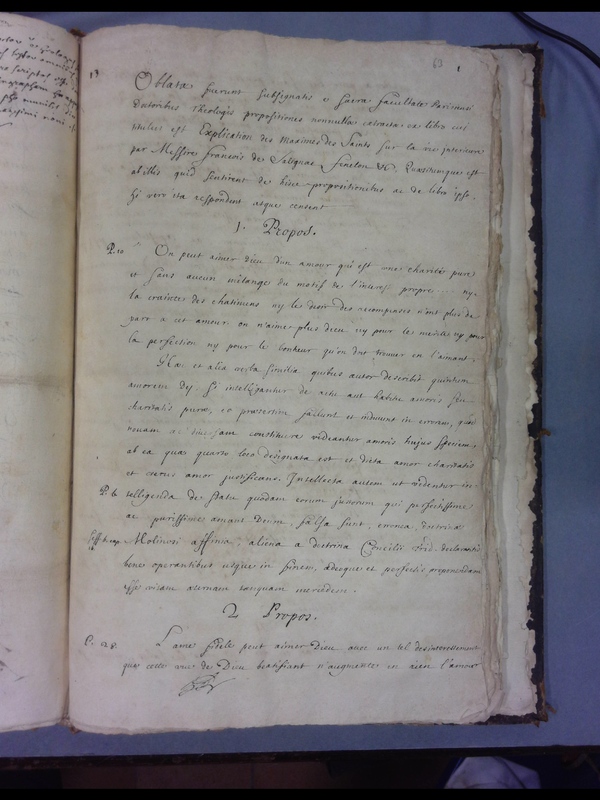 13
63
1
Oblatæ fuerunt subsignatis e sacra facultate Parisiensi
Doctoribus Theologis propositiones nonnullæ extractæ ex libro cui
titulus est Explication des Maximes des Saints sur la vie interieure
par Messire francois de Salignac fenelon &c. Quæsitumque est
ab illis quid sentirent de hisce propositionibus ac de libro ipso.
hi vero ita respondent atque censent
1. Propos.
P. 10
On peut aimer Dieu d'un amour qui est une charité pure
et sans aucun mêlange du motif de l'interest propre ... ny
la crainte des chatimens ny le desir des recompenses n'ont plus de
part a cet amour. on n'aime plus dieu ny pour le merite ny pour
la perfection ny pour le bonheur qu'on doit trouver en l'aimant.
Hæc et alia verba similia quibus autor describit quintum
amorem Dei si intelligantur de actu aut habitu amoris seu
charitatis puræ, eo præsertim fallunt et inducunt in errorem, quod
novam constituere videantur amoris hujus speciem,
ab ea quæ quarto loco designata est et dicta amor charitatis
et cætus amor justificans. Intellecta autem ut videntur in-
P. 6
telligenda de statu quodam eorum justorum qui perfectissime
ac purissime amant Deum, falsa sunt, erronea, doctrinæ
Molinosi affinia, aliena a doctrina Concilii Trid. declarantis
bene operantibus usque in finem, adeoque et perfectis proponendam
esse vitam æternam tanquam mercedem.
2 Propos.
P. 28.
L'ame fidele peut aimer Dieu avec un tel desinteressement
que cette vue de Dieu beatifiant n'augmente en rien l'amour